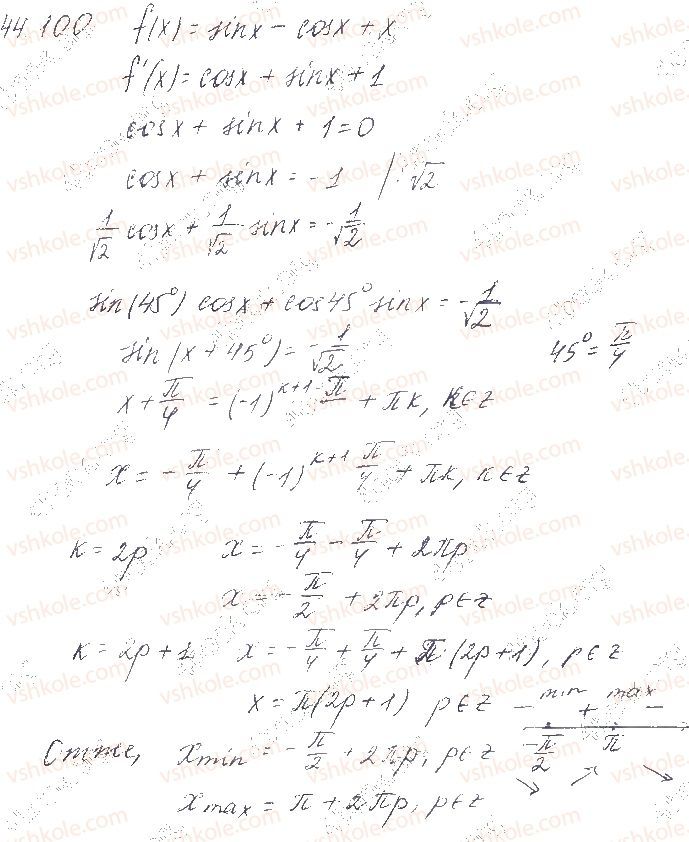 44.100 f(x) = sinx - cosx + x
f'(x) = cosx + sinx + 1
cosx + sinx + 1 = 0
cosx + sinx = -1 | : √2
1/√2 cosx + 1/√2 sinx = -1/√2
sin(45°) cosx + cos45° sinx = -1/√2
sin(x + 45°) = -1/√2 45° = π/4
x + π/4 = (-1)^(k+1) π/ + πk, k∈z
x = -π/4 + (-1)^(k+1) π/4 + πk, k∈z
k = 2p x = -π/4 - π/4 + 2πp
x = -π/2 + 2πp, p∈z
k = 2p + 1 x = -π/4 + π/4 + π(2p+1), p∈z
x = π(2p+1) p∈z - min + max -
Отже, xmin = -π/2 + 2πp, p∈z -π/2 π
xmax = π + 2πp, p∈z ↘ ↗ ↘
vshkole.com